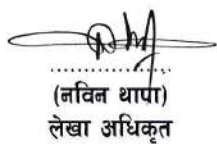 (नविन थापा)
लेखा अधिकृत